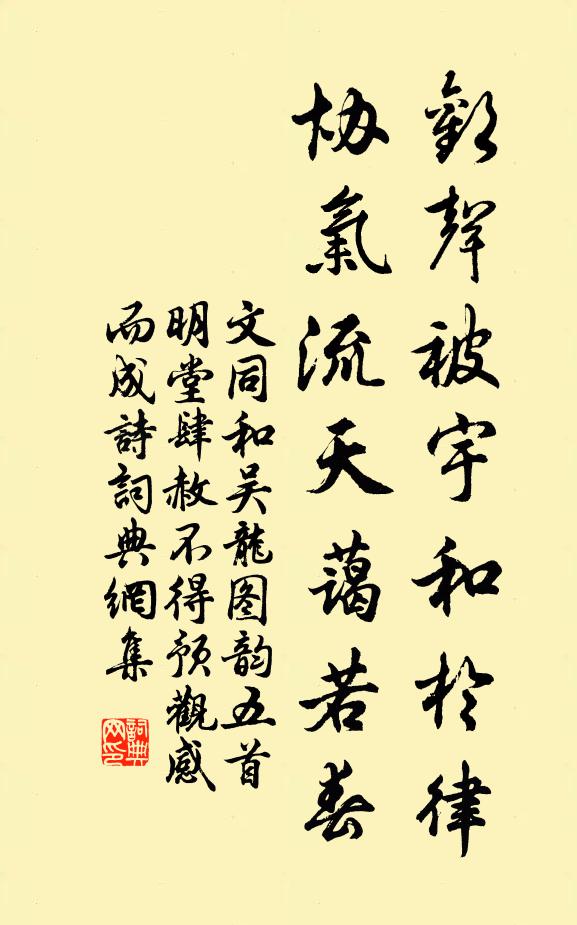 歡聲被宇和於律
协氣流天藹若春
文同和吴龍图韵五首
明堂肆赦不得预觀感
而成詩詞典網集
詞典网印